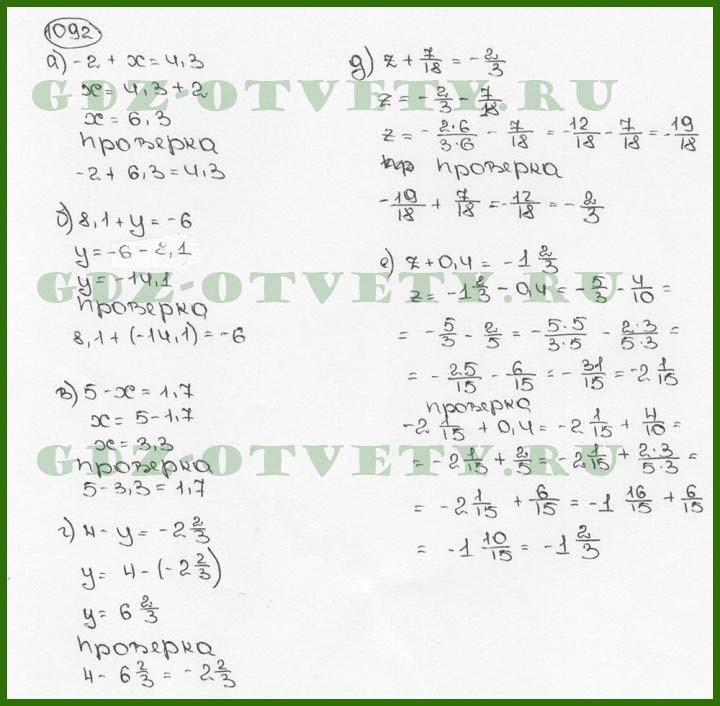 1092
а) -2 + x = 4,3
x = 4,3 + 2
x = 6,3
Проверка
-2 + 6,3 = 4,3
б) 8,1 + y = -6
y = -6 - 8,1
y = -14,1
Проверка
8,1 + (-14,1) = -6
в) 5 - x = 1,7
x = 5 - 1,7
x = 3,3
Проверка
5 - 3,3 = 1,7
г) 4 - y = -2 2/3
y = 4 - (-2 2/3)
y = 6 2/3
Проверка
4 - 6 2/3 = -2 2/3
д) z + 7/18 = -2/3
z = -2/3 - 7/18
z = -2·6/3·6 - 7/18 = -12/18 - 7/18 = -19/18
Проверка
-19/18 + 7/18 = -12/18 = -2/3
е) z + 0,4 = -1 2/3
z = -1 2/3 - 0,4 = -5/3 - 4/10 =
= -5/3 - 2/5 = -5·5/3·5 - 2·3/5·3 =
= -25/15 - 6/15 = -31/15 = -2 1/15
проверка
-2 1/15 + 0,4 = -2 1/15 + 4/10 =
= -2 1/15 + 2/5 = -2 1/15 + 2·3/5·3 =
= -2 1/15 + 6/15 = -1 16/15 + 6/15
= -1 10/15 = -1 2/3
GDZ-OTVETY.RU
GDZ-OTVETY.RU
GDZ-OTVETY.RU